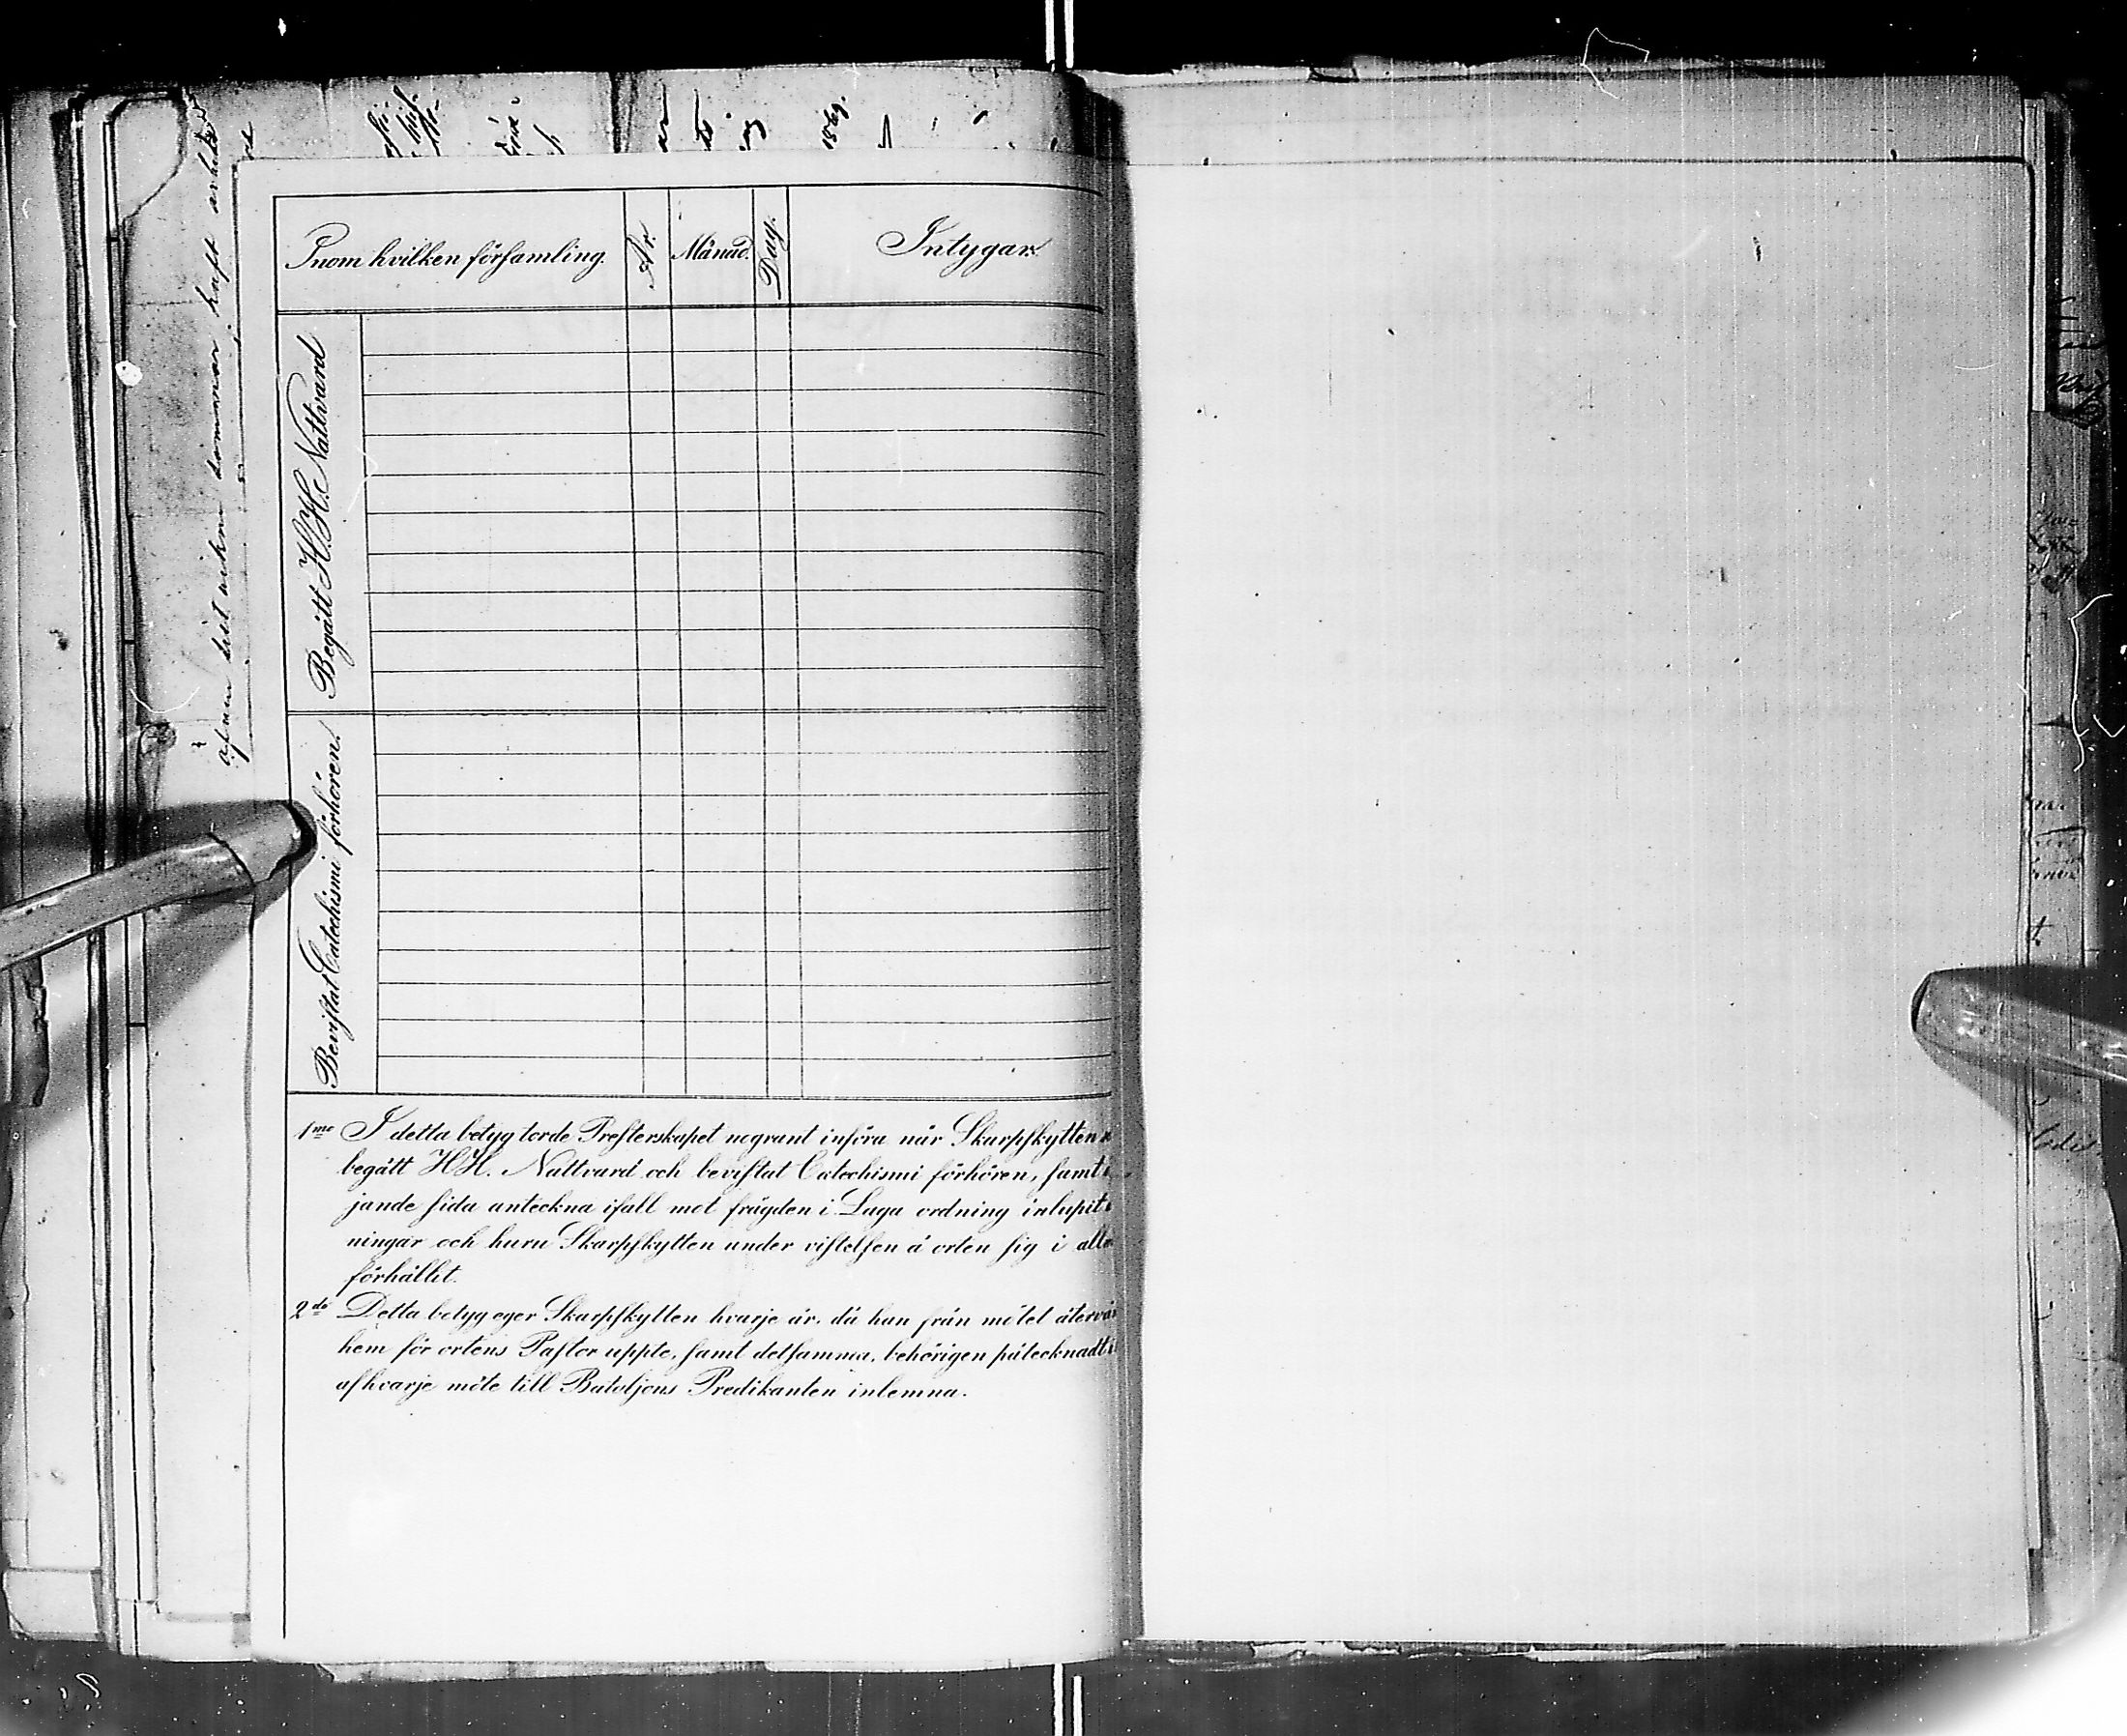 Inom hvilken församling. År. Månad. Dag. Intygar:
Begått H.H. Nattvard
Bevistat Catechismi förhören.
1mo I detta betyg torde Presterskapet nogrant införa når Skarpskytten
begått H.H. Nattvard och bevistat Catechismi förhören, samt
jande sida anteckna ifall mot frägden i Laga ordning inlupit
ningar och huru Skarpskytten under vistelsen å orten sig i
förhållit.
2do Detta betyg eger Skarpskytten hvarje år, då han från mötet återvä
hem för ortens Pastor uppte, samt detsamma, behörigen påtecknadt
af hvarje möte till Bataljons Predikanten inlemna.
sommar haft
1869.